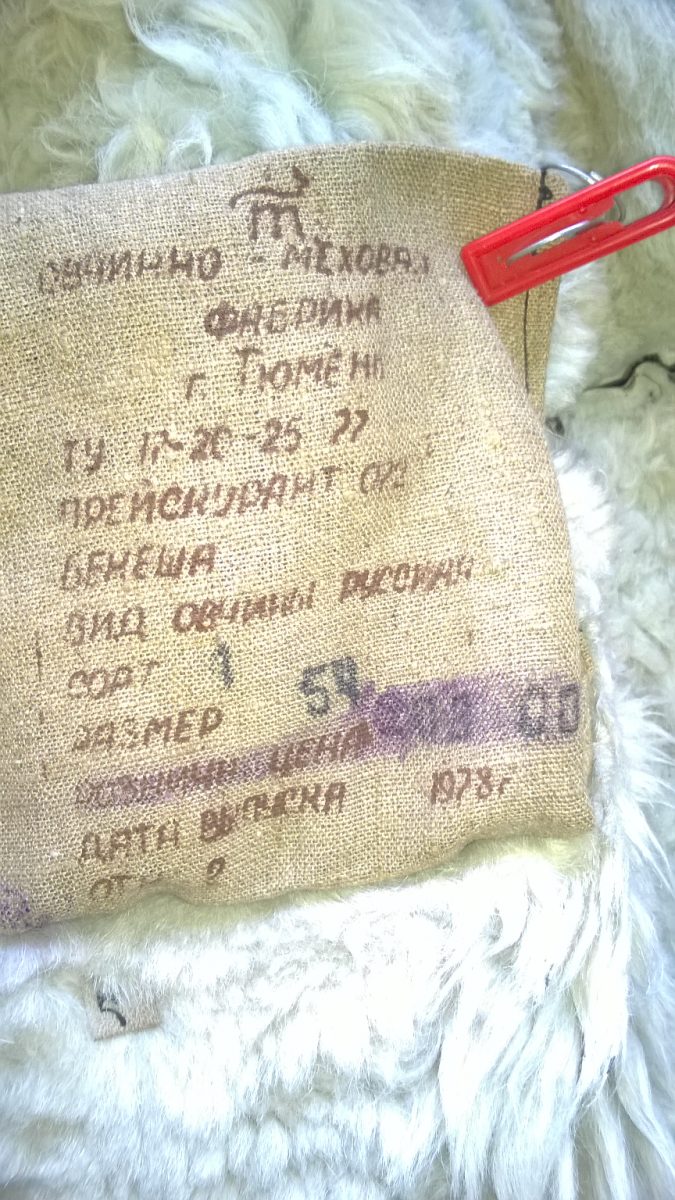 ОВЧИННО - МЕХОВАЯ
ФАБРИКА
г. ТЮМЕНЬ
ТУ 17-20-25 77
ПРЕЙСКУРАНТ
БЕКЕША
ВИД ОВЧИНЫ РУССКАЯ
СОРТ 1
РАЗМЕР 54
РОЗНИЧН ЦЕНА
ДАТА ВЫПУСКА 1978 г
5